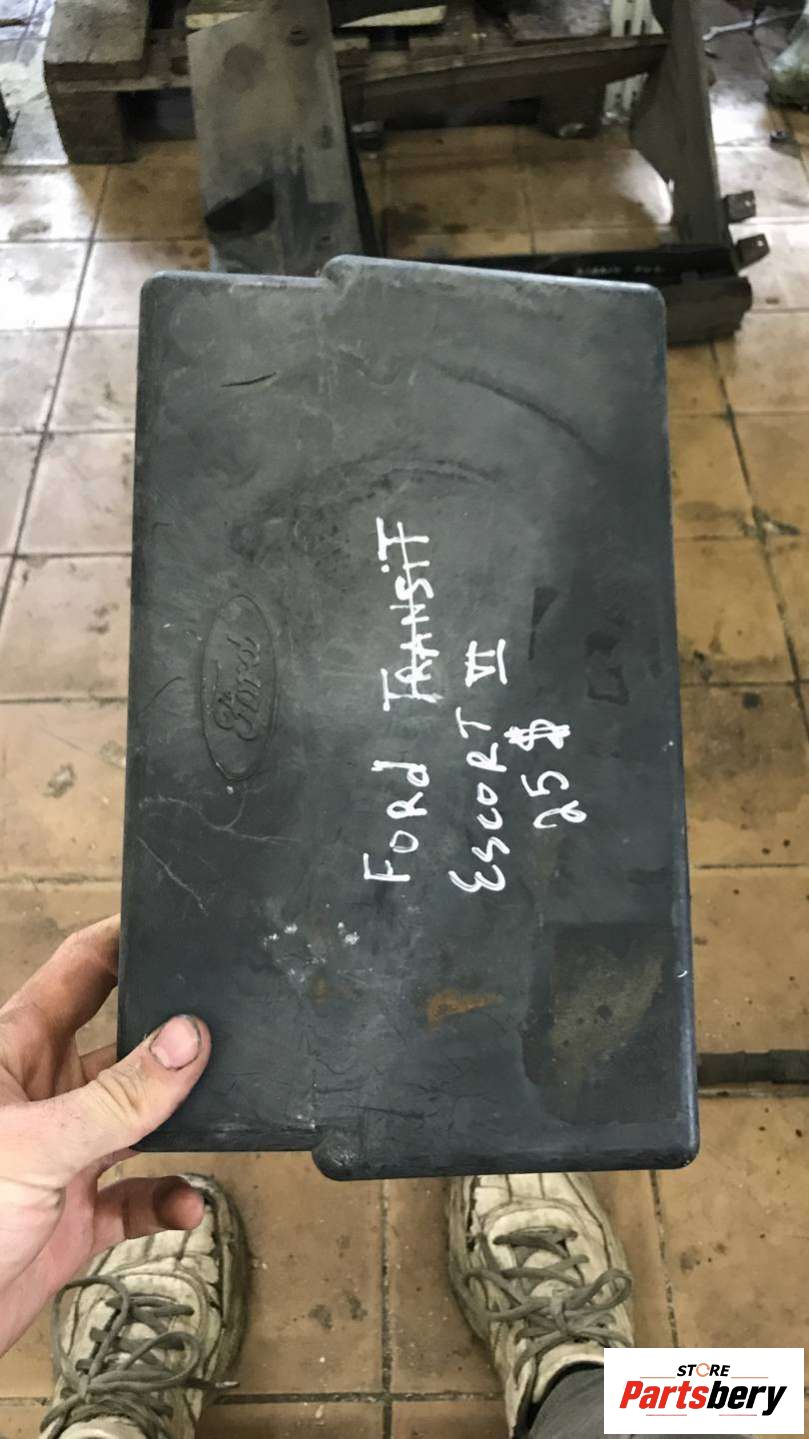 Ford
FORd TRANSiT
ESCORT VI
25$
STORE
Partsbery